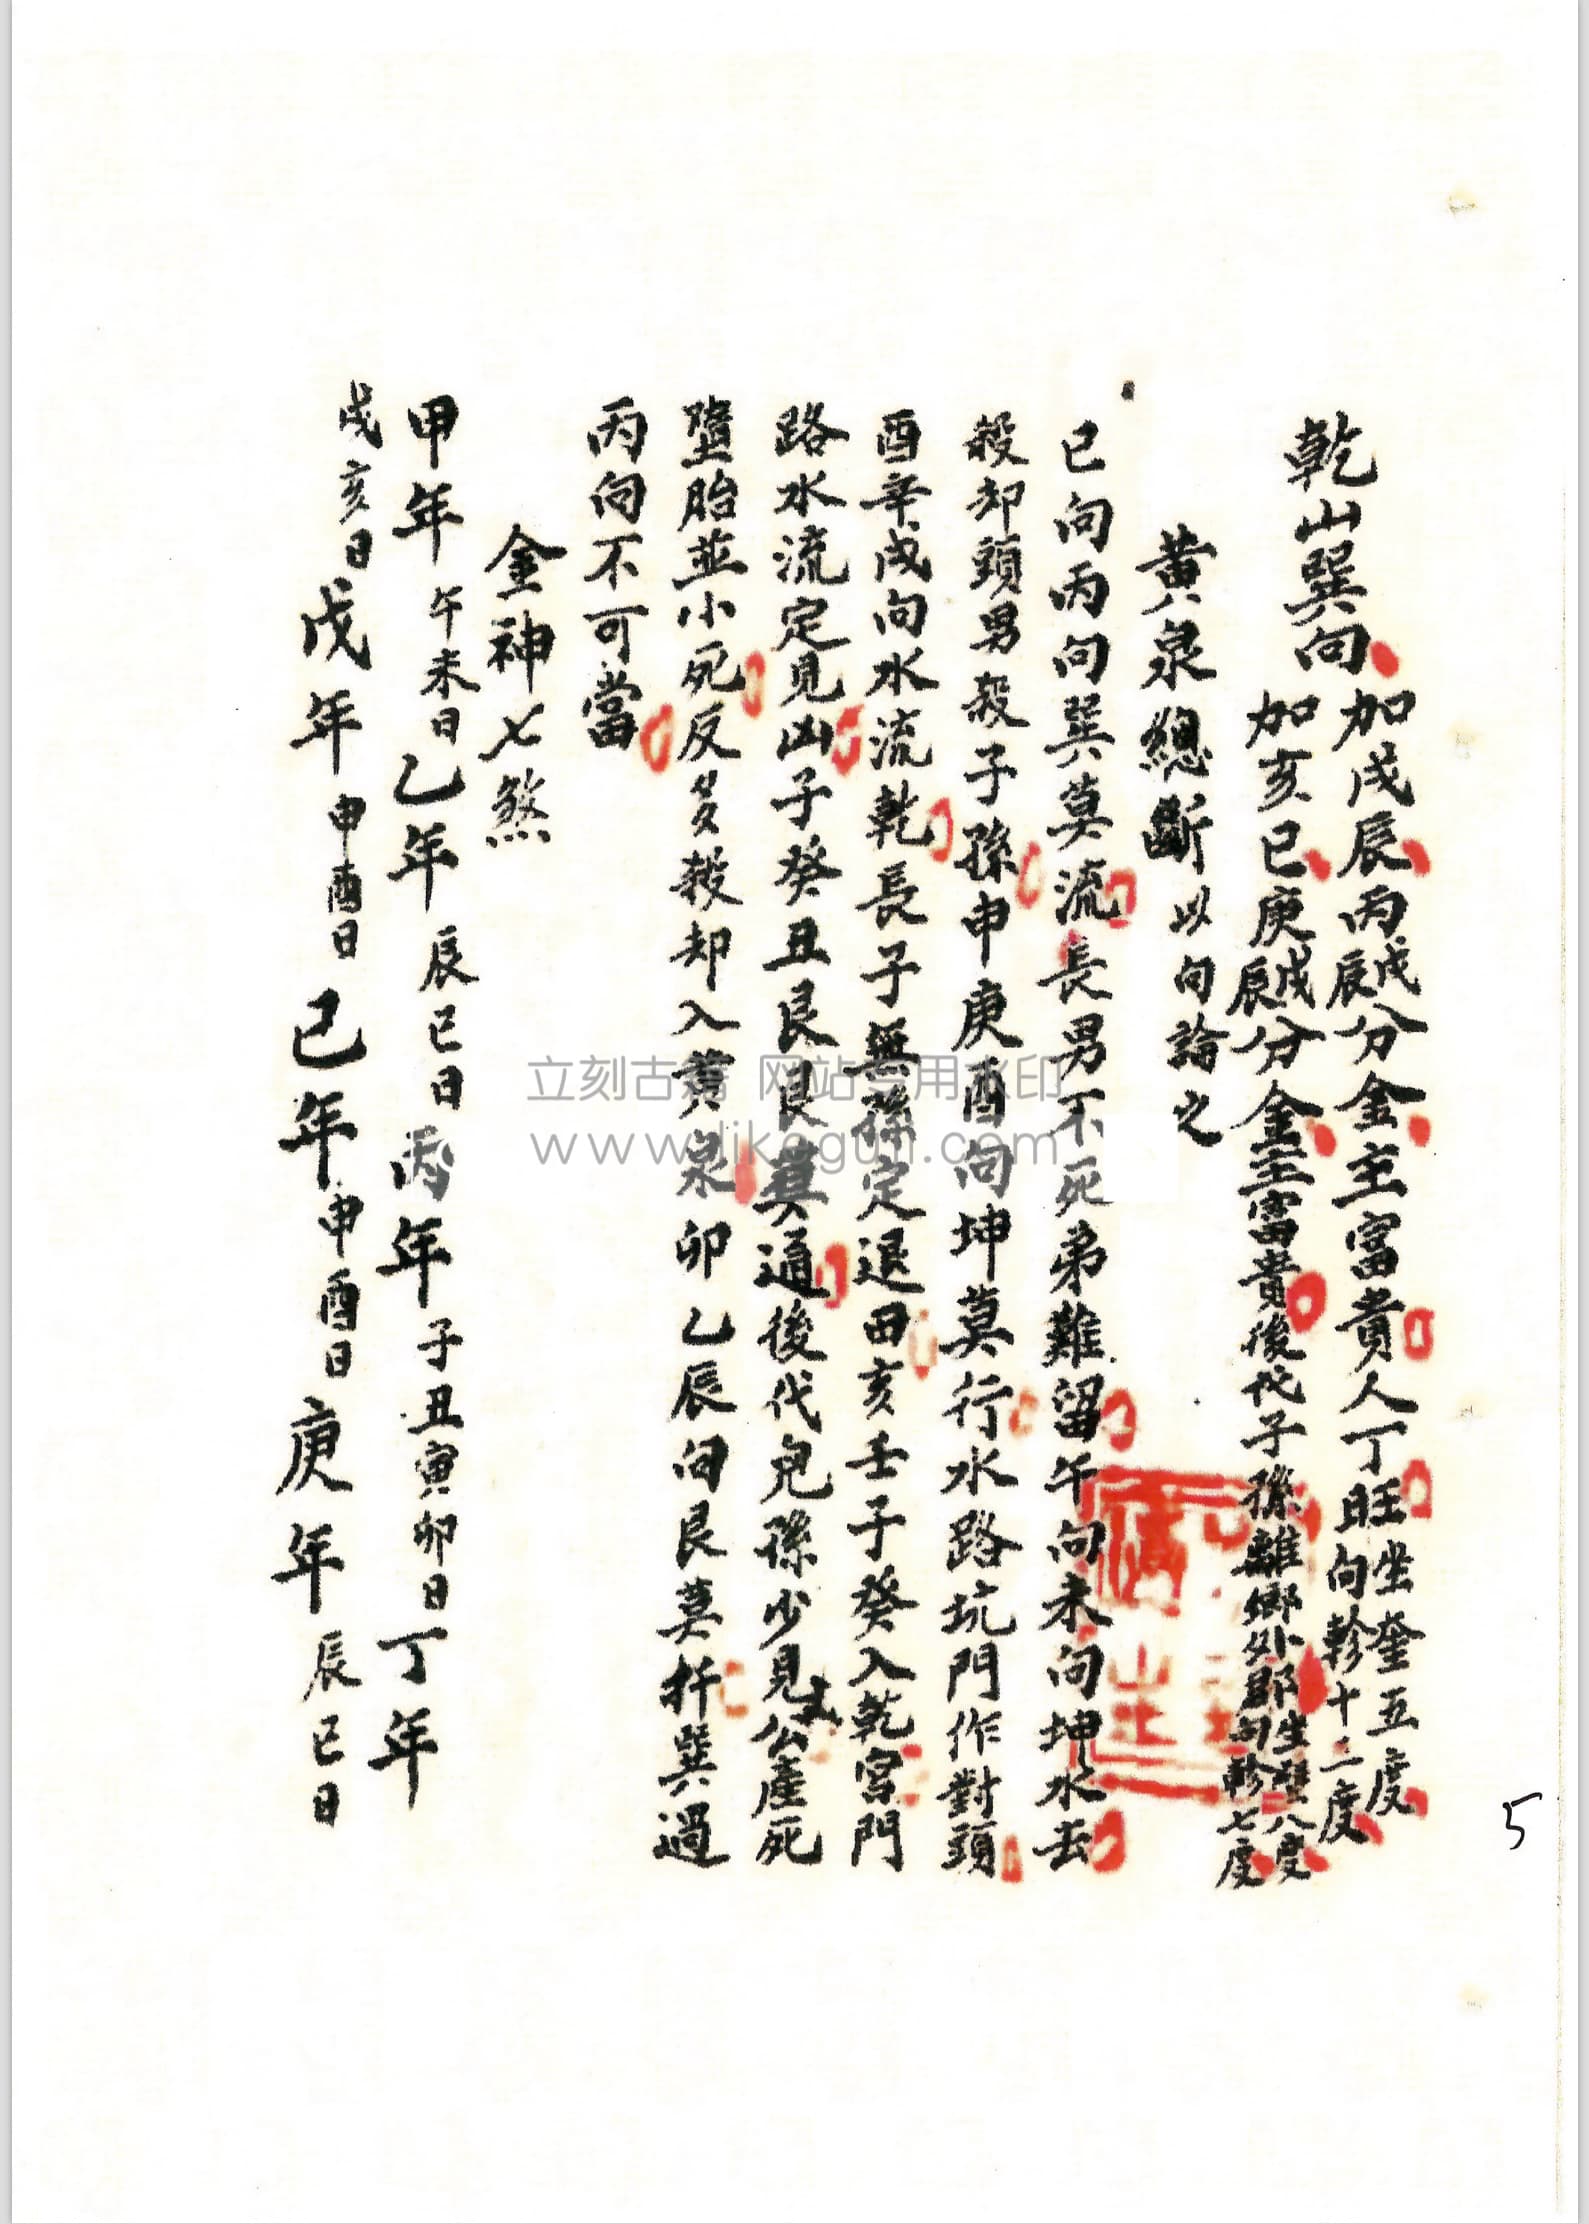 乾山巽向
加戌辰丙戌丙辰分金主富貴人丁旺坐奎五度向軫十二度
加亥巳庚戌庚辰分金主富貴後代子孫離鄉外郡生壁八度向軫七度
黄泉總斷以向論之
巳向丙向巽莫流長男不死弟難留午向未向坤水去
殺却頭男殺子孫申庚酉向坤莫行水路坑門作對頭
酉辛戌向水流乾長子無孫定退田亥壬子癸入乾宮門
路水流定見凶子癸丑艮艮莫通後代兒孫少見公產死
墮胎並小死反多殺却入黄泉卯乙辰向艮莫扦巽過
丙向不可當
金神七煞
甲年午未日乙年辰巳日丙年子丑寅卯日丁年
戌亥日戊年申酉日己年申酉日庚年辰巳日
5
立刻古籍 网站专用水印
www.likeguji.com